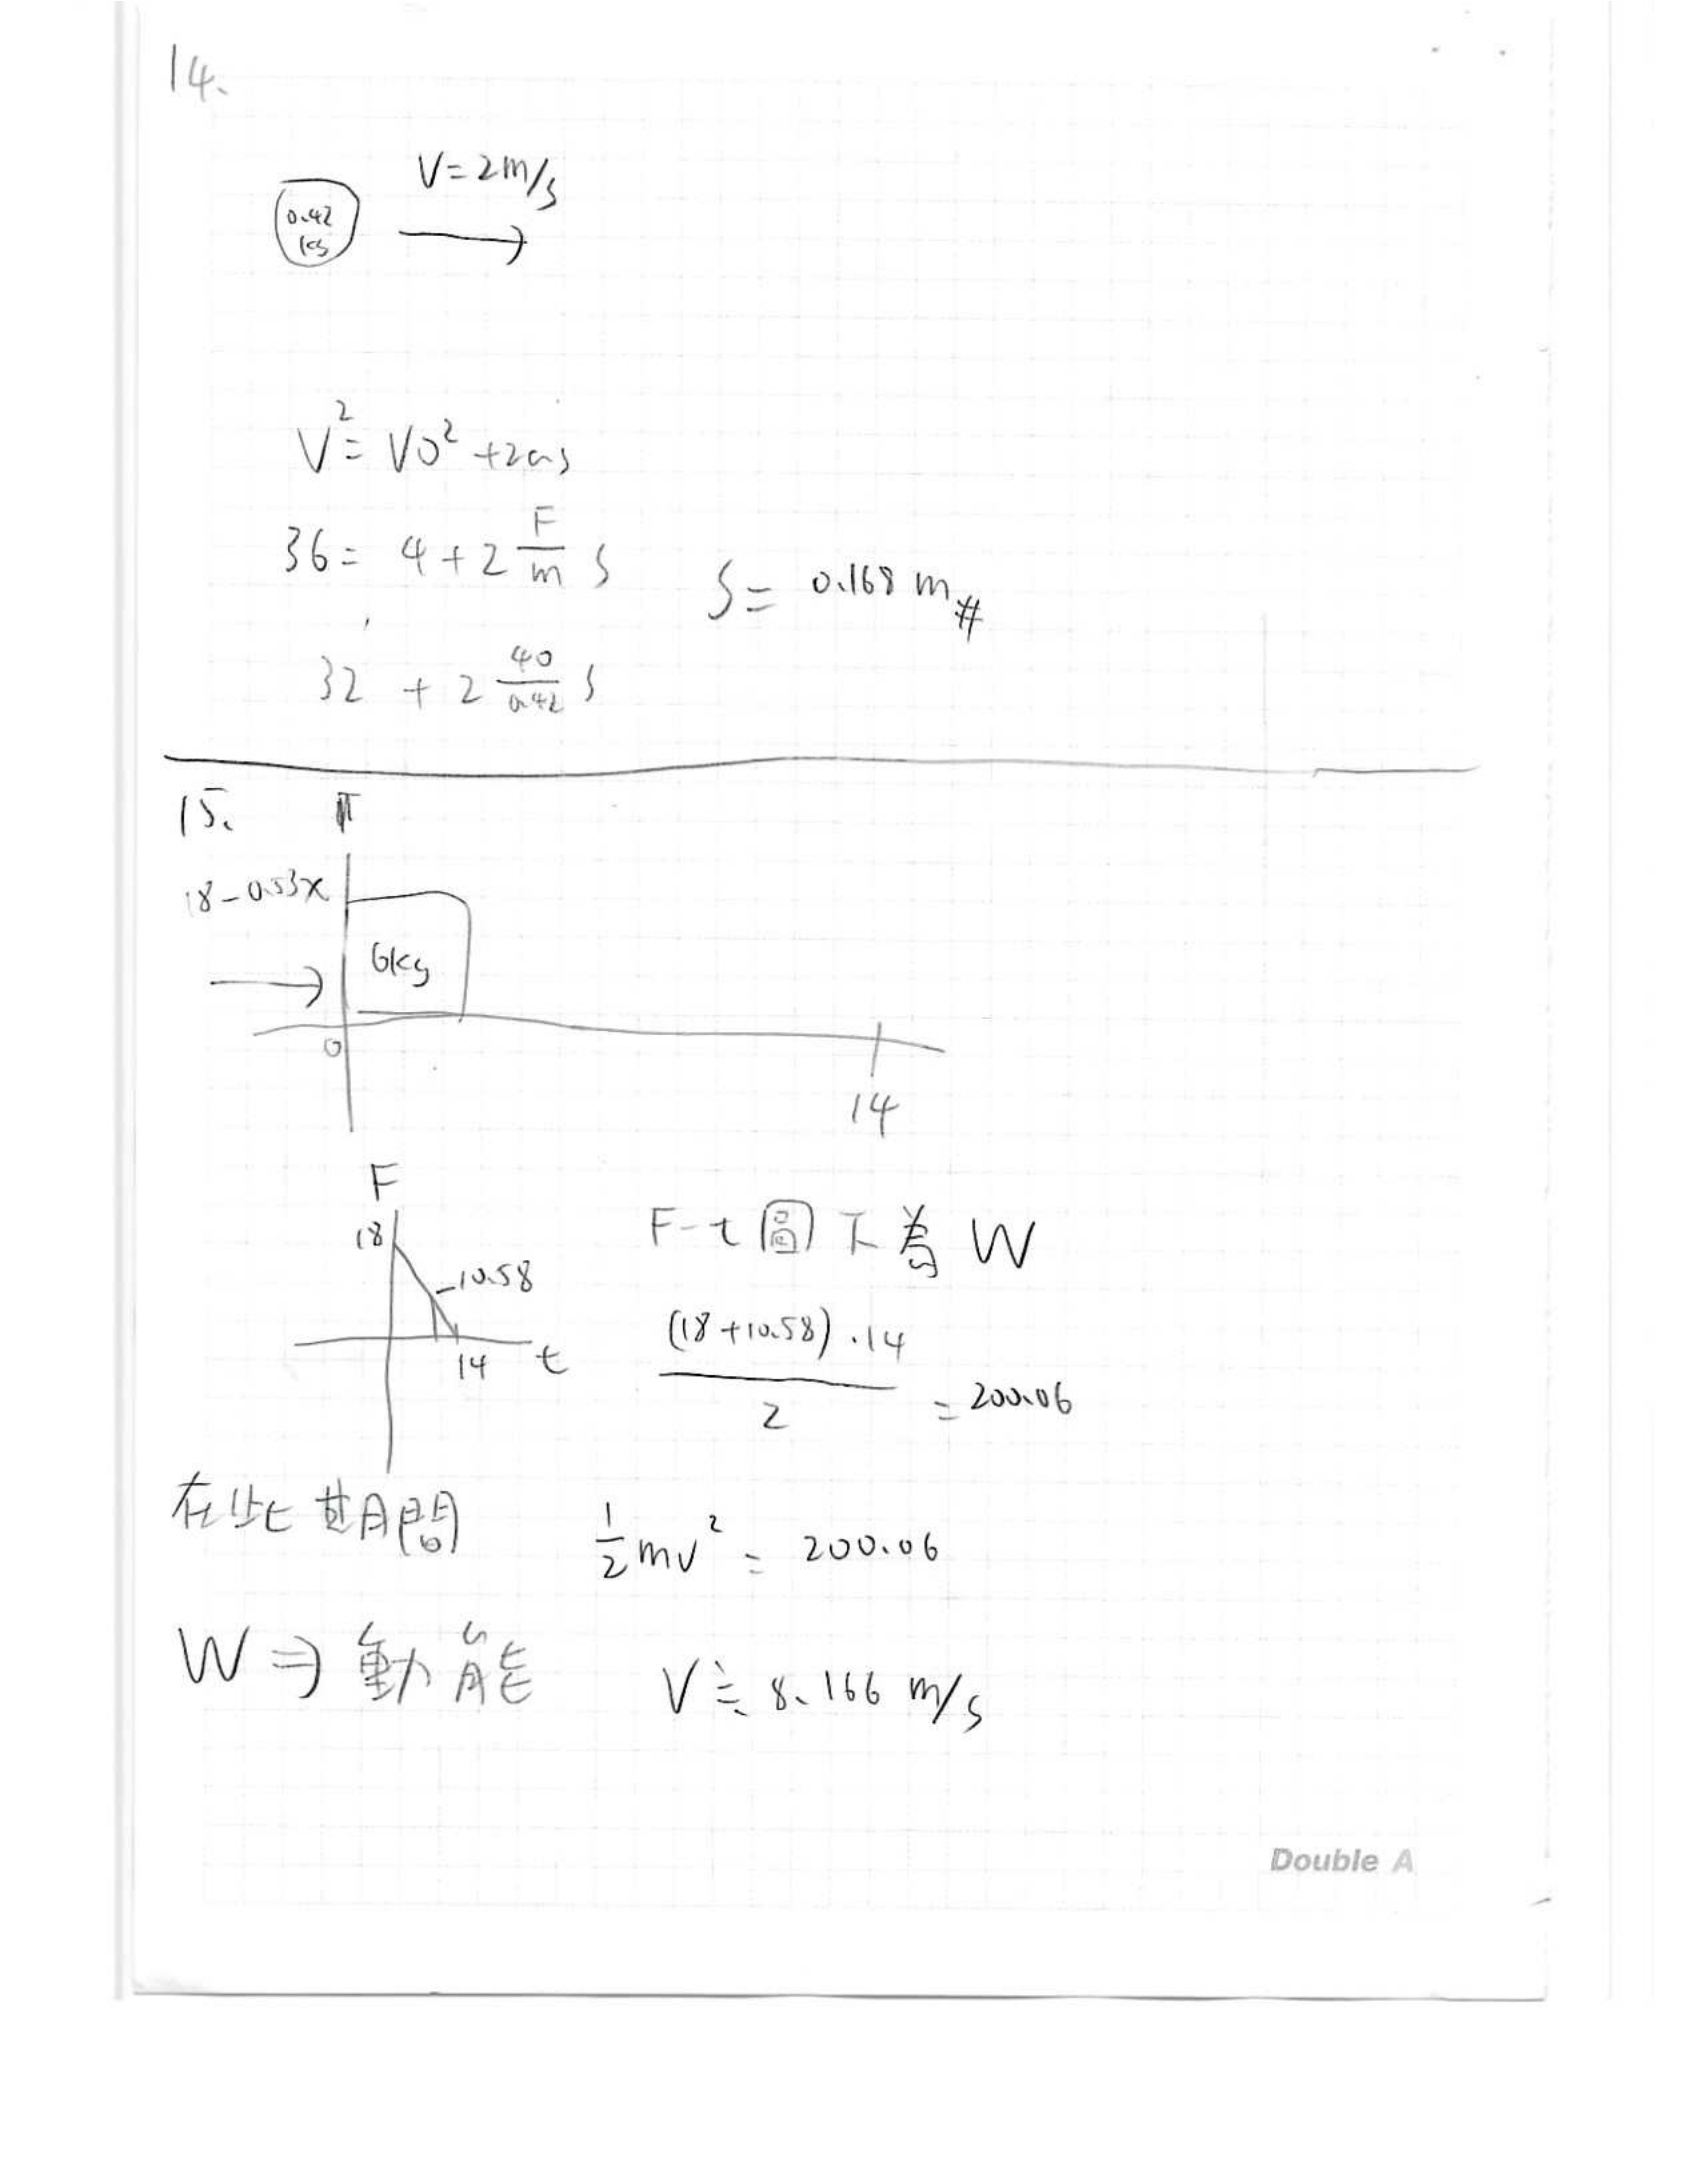 14.
V=2m/s
0.42
kg
V²=V0²+2as
36= 4+2 F/m S
S= 0.168 m #
32 + 2 40/0.42 S
15.
18-0.53x
6kg
0
14
F
18
-10.58
14 t
F-t圖下為W
(18+10.58).14
2
=200.06
在此期間
1/2 mv² = 200.06
W⇒動能
V≒8.166 m/s
Double A